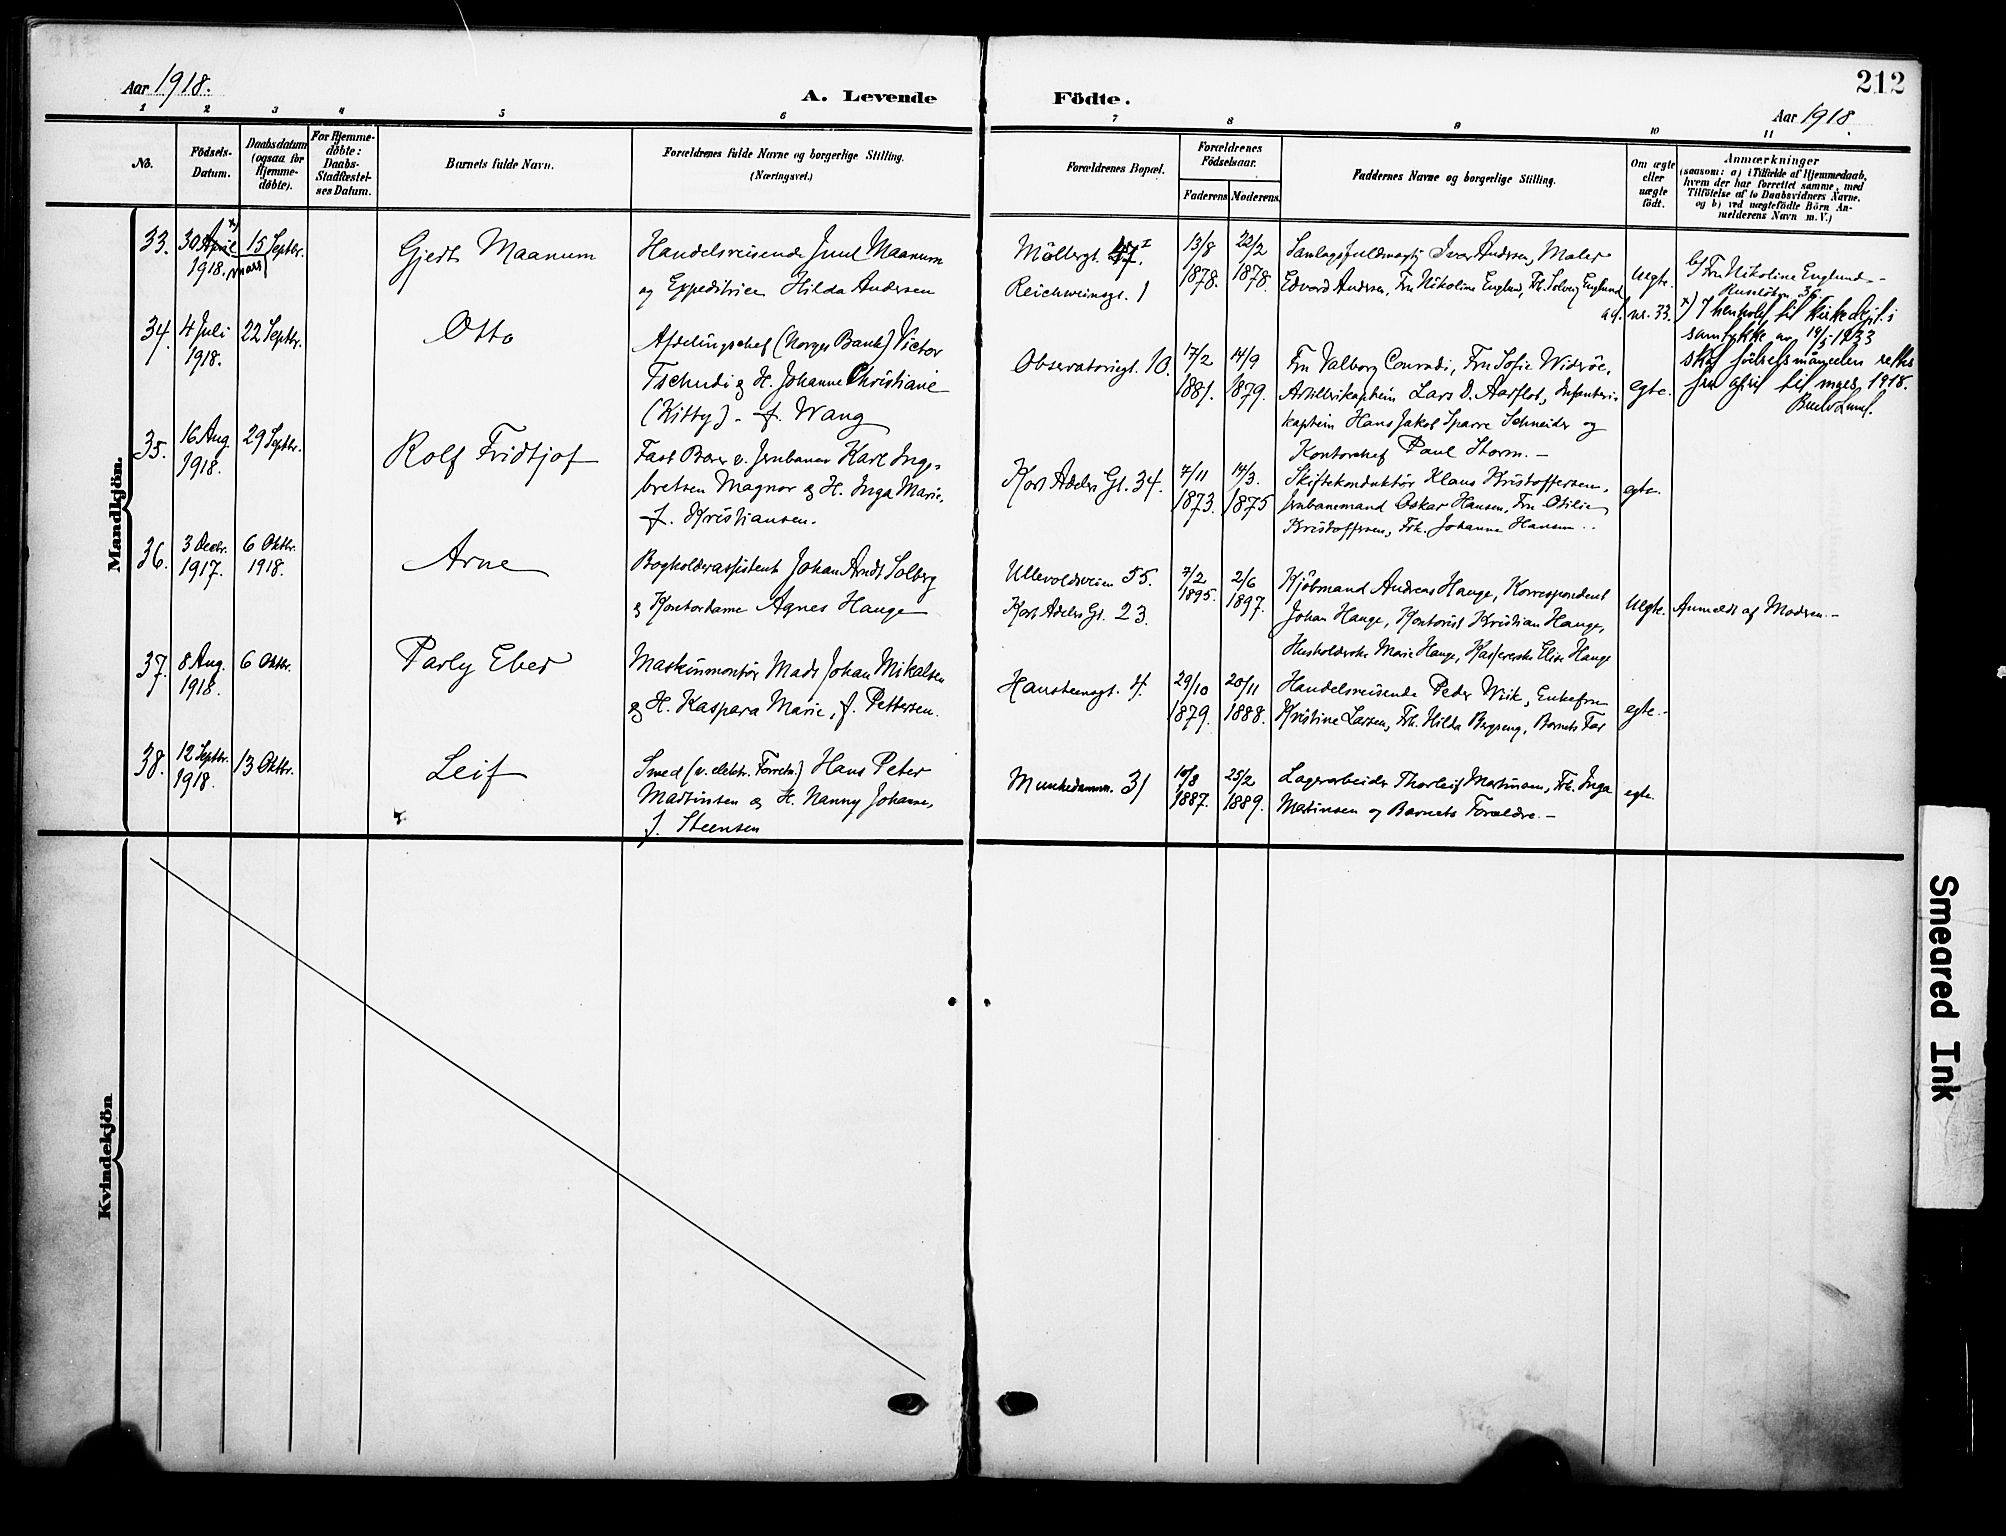 212
Aar 1918.
A. Levende Födte.
Aar 1918.
1 2 3 4 5 6 7 8 9 10 11
No.
Födsels-
Datum.
Daabsdatum
(ogsaa for
Hjemme-
döbte).
For Hjemme-
döbte:
Daabs-
Stadfæstel-
ses Datum.
Barnets fulde Navn.
Forældrenes fulde Navne og borgerlige Stilling.
(Næringsvei.)
Forældrenes Bopæl.
Forældrenes
Födselsaar.
Faderens Moderens
Faddernes Navne og borgerlige Stilling.
Om ægte
eller
uægte
födt.
Anmærkninger
(saasom: a) i Tilfælde af Hjemmedaab,
hvem der har forrettet samme, med
Tilföielse af to Daabsvidners Navne.
og b) ved uægtefödte Börn An-
melderens Navn m. V.)
Mandkjön.
33. 30 April x) 1918. mars
15 Septbr.
Gjedt Maanum
Handelsreisende Juul Maanum
og Expeditrice Hilda Andersen
Möllergt. 47 I.
Reichweinsgt. 1
13/8 1878.
22/2 1878.
Samlagsfuldmægti Ivar Andersen, Maler
Edvard Andersen, Fru Nikoline Englund, Frk. Solveig Englund
uegte.
b/ Fru Nikoline Englund
Ruselökvn. 36
ad. nr. 33. x) I henhold til Kirkedept.s
samtykke av 19/5 1933
skal födselsmåneden rettes
fra april til mars 1918.
34. 4 Juli 1918.
22 Septbr.
Otto
Afdelingschef (Norges Bank) Victor
Tschudi og H. Johanne Christiane
(Kitty). f. Wang
Observatoriegt. 10.
17/2 1881.
14/9 1879.
Fru Valborg Conradi, Fru Sofie Wideröe,
Artillerikaptein Lars D. Aarflot, Infanteri-
kaptein Hans Jakob Sparre Schneider og
Kontorchef Paul Storm. –
egte.
35. 16 Aug. 1918.
29 Septbr.
Rolf Fridtjof
Fast Bærer v. Jernbanen Karl Inge-
bretsen Magnor og H. Inga Marie,
f. Kristiansen.
Kort Adelers Gt. 34.
7/11 1873.
14/3. 1875
Skiftekonduktör Klaus Kristoffersen,
Jernbanemand Oskar Hansen, Fru Otilie
Kristoffersen, Frk. Johanne Hansen.
egte.
36. 3 Decbr. 1917.
6 Oktbr. 1918.
Arne
Bogholderassistent Johan Arndt Solberg
& Kontordame Agnes Hauge
Ullevoldsveien 55.
Kort Adelers Gt. 23.
7/2 1895.
2/6 1897.
Kjöbmand Andreas Hauge, Korrespondent
Johan Hauge, Kontorist Kristian Hauge,
Husholderske Marie Hauge, Kassererske Elise Hauge
uegte.
Anmeldt af Moderen. –
37. 8 Aug. 1918.
6 Oktbr.
Parly Eber
Maskinmontör Mads Johan Mikalsen
og H. Kaspara Marie, f. Pettersen.
Hansteensgt. 4.
29/10 1879.
20/11 1888.
Handelsreisende Peder Wiik, Enkefru
Kristine Larsen, Frk. Hilda Bergseng, Barnets Far
egte. –
38. 12 Septbr. 1918.
13 Oktbr.
Leif
Smed (v. elektr. Forretn.) Hans Peter
Martinsen og H. Nanny Johanne,
f. Steensen
Munkedamsv. 31
10/8 1887.
25/2 1889.
Lagerarbeider Thorleif Martinsen, Frk. Inga
Martinsen og Barnets Forældre. –
egte.
Kvindekjön
Smeared Ink